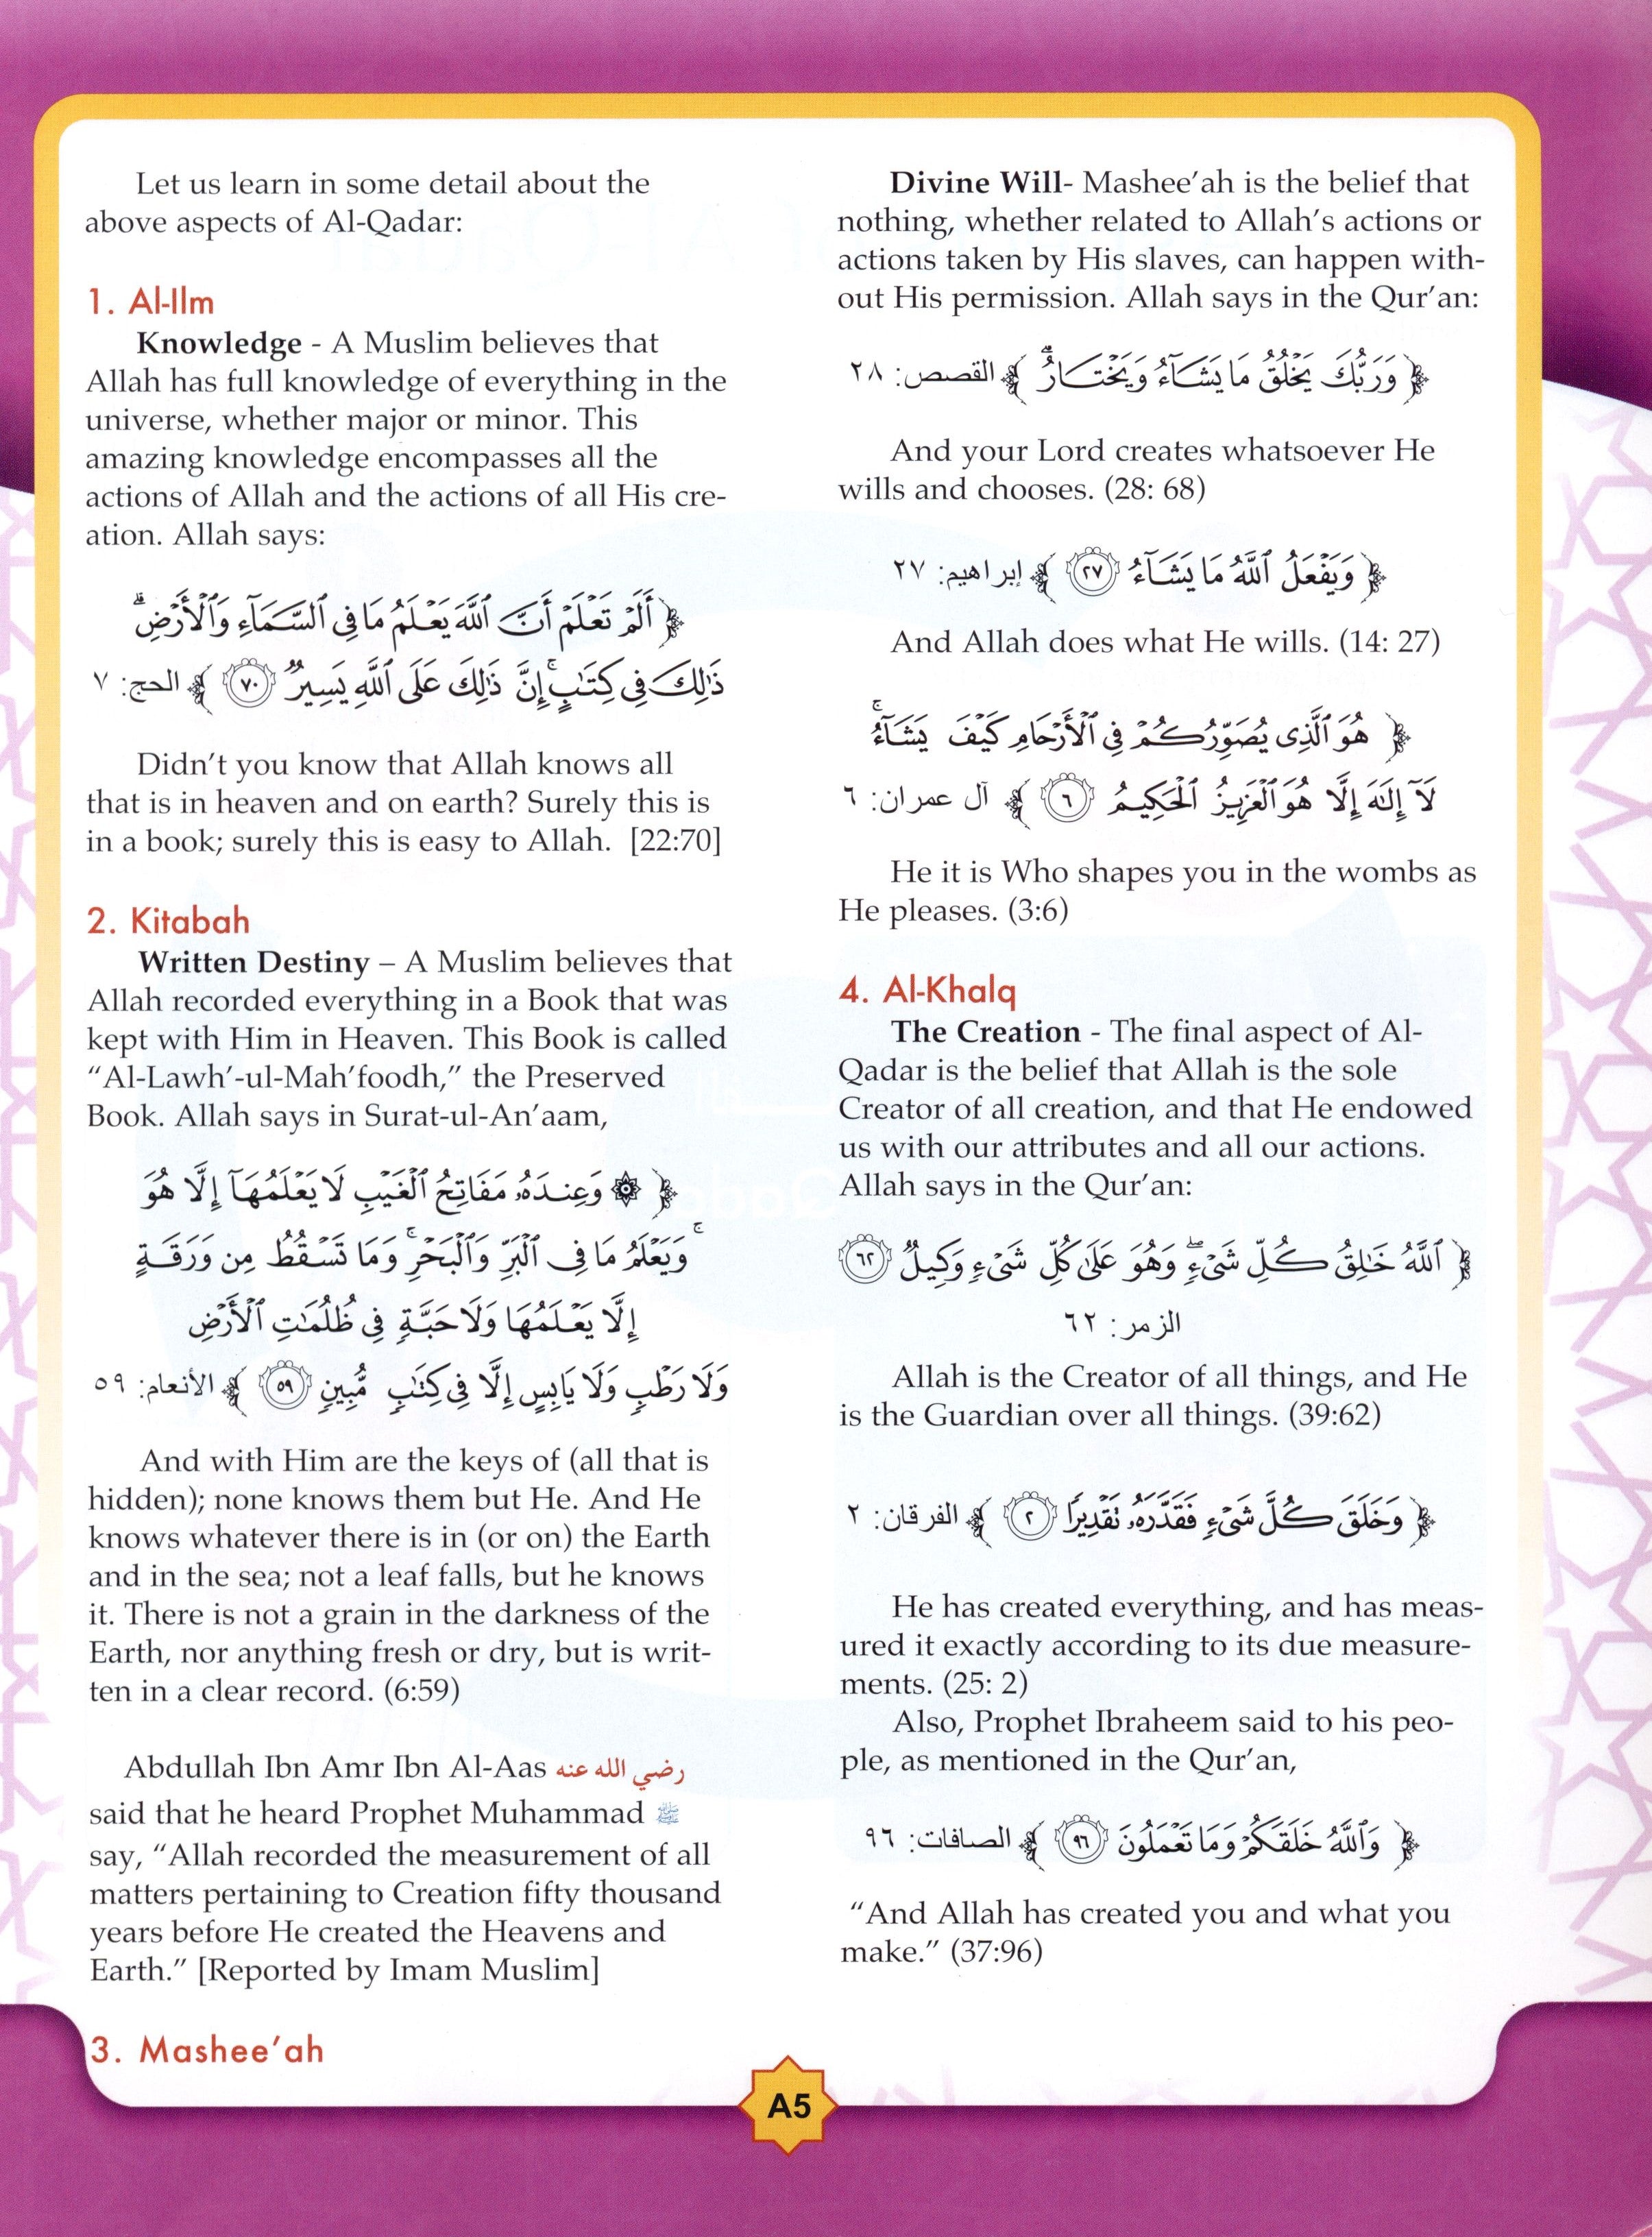 Let us learn in some detail about the
above aspects of Al-Qadar:
1. Al-Ilm
Knowledge - A Muslim believes that
Allah has full knowledge of everything in the
universe, whether major or minor. This
amazing knowledge encompasses all the
actions of Allah and the actions of all His cre-
ation. Allah says:
﴿ أَلَمْ تَعْلَمْ أَنَّ ٱللَّهَ يَعْلَمُ مَا فِى ٱلسَّمَآءِ وَٱلْأَرْضِ ۗ
ذَٰلِكَ فِى كِتَٰبٍ ۚ إِنَّ ذَٰلِكَ عَلَى ٱللَّهِ يَسِيرٌ ﴿٧٠﴾ ﴾ الحج: ٧
Didn't you know that Allah knows all
that is in heaven and on earth? Surely this is
in a book; surely this is easy to Allah. [22:70]
2. Kitabah
Written Destiny – A Muslim believes that
Allah recorded everything in a Book that was
kept with Him in Heaven. This Book is called
"Al-Lawh'-ul-Mah'foodh," the Preserved
Book. Allah says in Surat-ul-An'aam,
﴿ ۞ وَعِندَهُۥ مَفَاتِحُ ٱلْغَيْبِ لَا يَعْلَمُهَآ إِلَّا هُوَ
ۚ وَيَعْلَمُ مَا فِى ٱلْبَرِّ وَٱلْبَحْرِ ۚ وَمَا تَسْقُطُ مِن وَرَقَةٍ
إِلَّا يَعْلَمُهَا وَلَا حَبَّةٍ فِى ظُلُمَٰتِ ٱلْأَرْضِ
وَلَا رَطْبٍ وَلَا يَابِسٍ إِلَّا فِى كِتَٰبٍ مُّبِينٍ ﴿٥٩﴾ ﴾ الأنعام: ٥٩
And with Him are the keys of (all that is
hidden); none knows them but He. And He
knows whatever there is in (or on) the Earth
and in the sea; not a leaf falls, but he knows
it. There is not a grain in the darkness of the
Earth, nor anything fresh or dry, but is writ-
ten in a clear record. (6:59)
Abdullah Ibn Amr Ibn Al-Aas رضي الله عنه
said that he heard Prophet Muhammad ﷺ
say, "Allah recorded the measurement of all
matters pertaining to Creation fifty thousand
years before He created the Heavens and
Earth." [Reported by Imam Muslim]
3. Mashee'ah
Divine Will- Mashee'ah is the belief that
nothing, whether related to Allah's actions or
actions taken by His slaves, can happen with-
out His permission. Allah says in the Qur'an:
﴿ وَرَبُّكَ يَخْلُقُ مَا يَشَآءُ وَيَخْتَارُ ۗ ﴾ القصص: ٢٨
And your Lord creates whatsoever He
wills and chooses. (28: 68)
﴿ وَيَفْعَلُ ٱللَّهُ مَا يَشَآءُ ﴿٢٧﴾ ﴾ إبراهيم: ٢٧
And Allah does what He wills. (14: 27)
﴿ هُوَ ٱلَّذِى يُصَوِّرُكُمْ فِى ٱلْأَرْحَامِ كَيْفَ يَشَآءُ ۚ
لَآ إِلَٰهَ إِلَّا هُوَ ٱلْعَزِيزُ ٱلْحَكِيمُ ﴿٦﴾ ﴾ آل عمران: ٦
He it is Who shapes you in the wombs as
He pleases. (3:6)
4. Al-Khalq
The Creation - The final aspect of Al-
Qadar is the belief that Allah is the sole
Creator of all creation, and that He endowed
us with our attributes and all our actions.
Allah says in the Qur'an:
﴿ ٱللَّهُ خَٰلِقُ كُلِّ شَىْءٍ ۖ وَهُوَ عَلَىٰ كُلِّ شَىْءٍ وَكِيلٌ ﴿٦٢﴾
الزمر: ٦٢
Allah is the Creator of all things, and He
is the Guardian over all things. (39:62)
﴿ وَخَلَقَ كُلَّ شَىْءٍ فَقَدَّرَهُۥ تَقْدِيرًا ﴿٢﴾ ﴾ الفرقان: ٢
He has created everything, and has meas-
ured it exactly according to its due measure-
ments. (25: 2)
Also, Prophet Ibraheem said to his peo-
ple, as mentioned in the Qur'an,
﴿ وَٱللَّهُ خَلَقَكُمْ وَمَا تَعْمَلُونَ ﴿٩٦﴾ ﴾ الصافات: ٩٦
"And Allah has created you and what you
make." (37:96)
A5